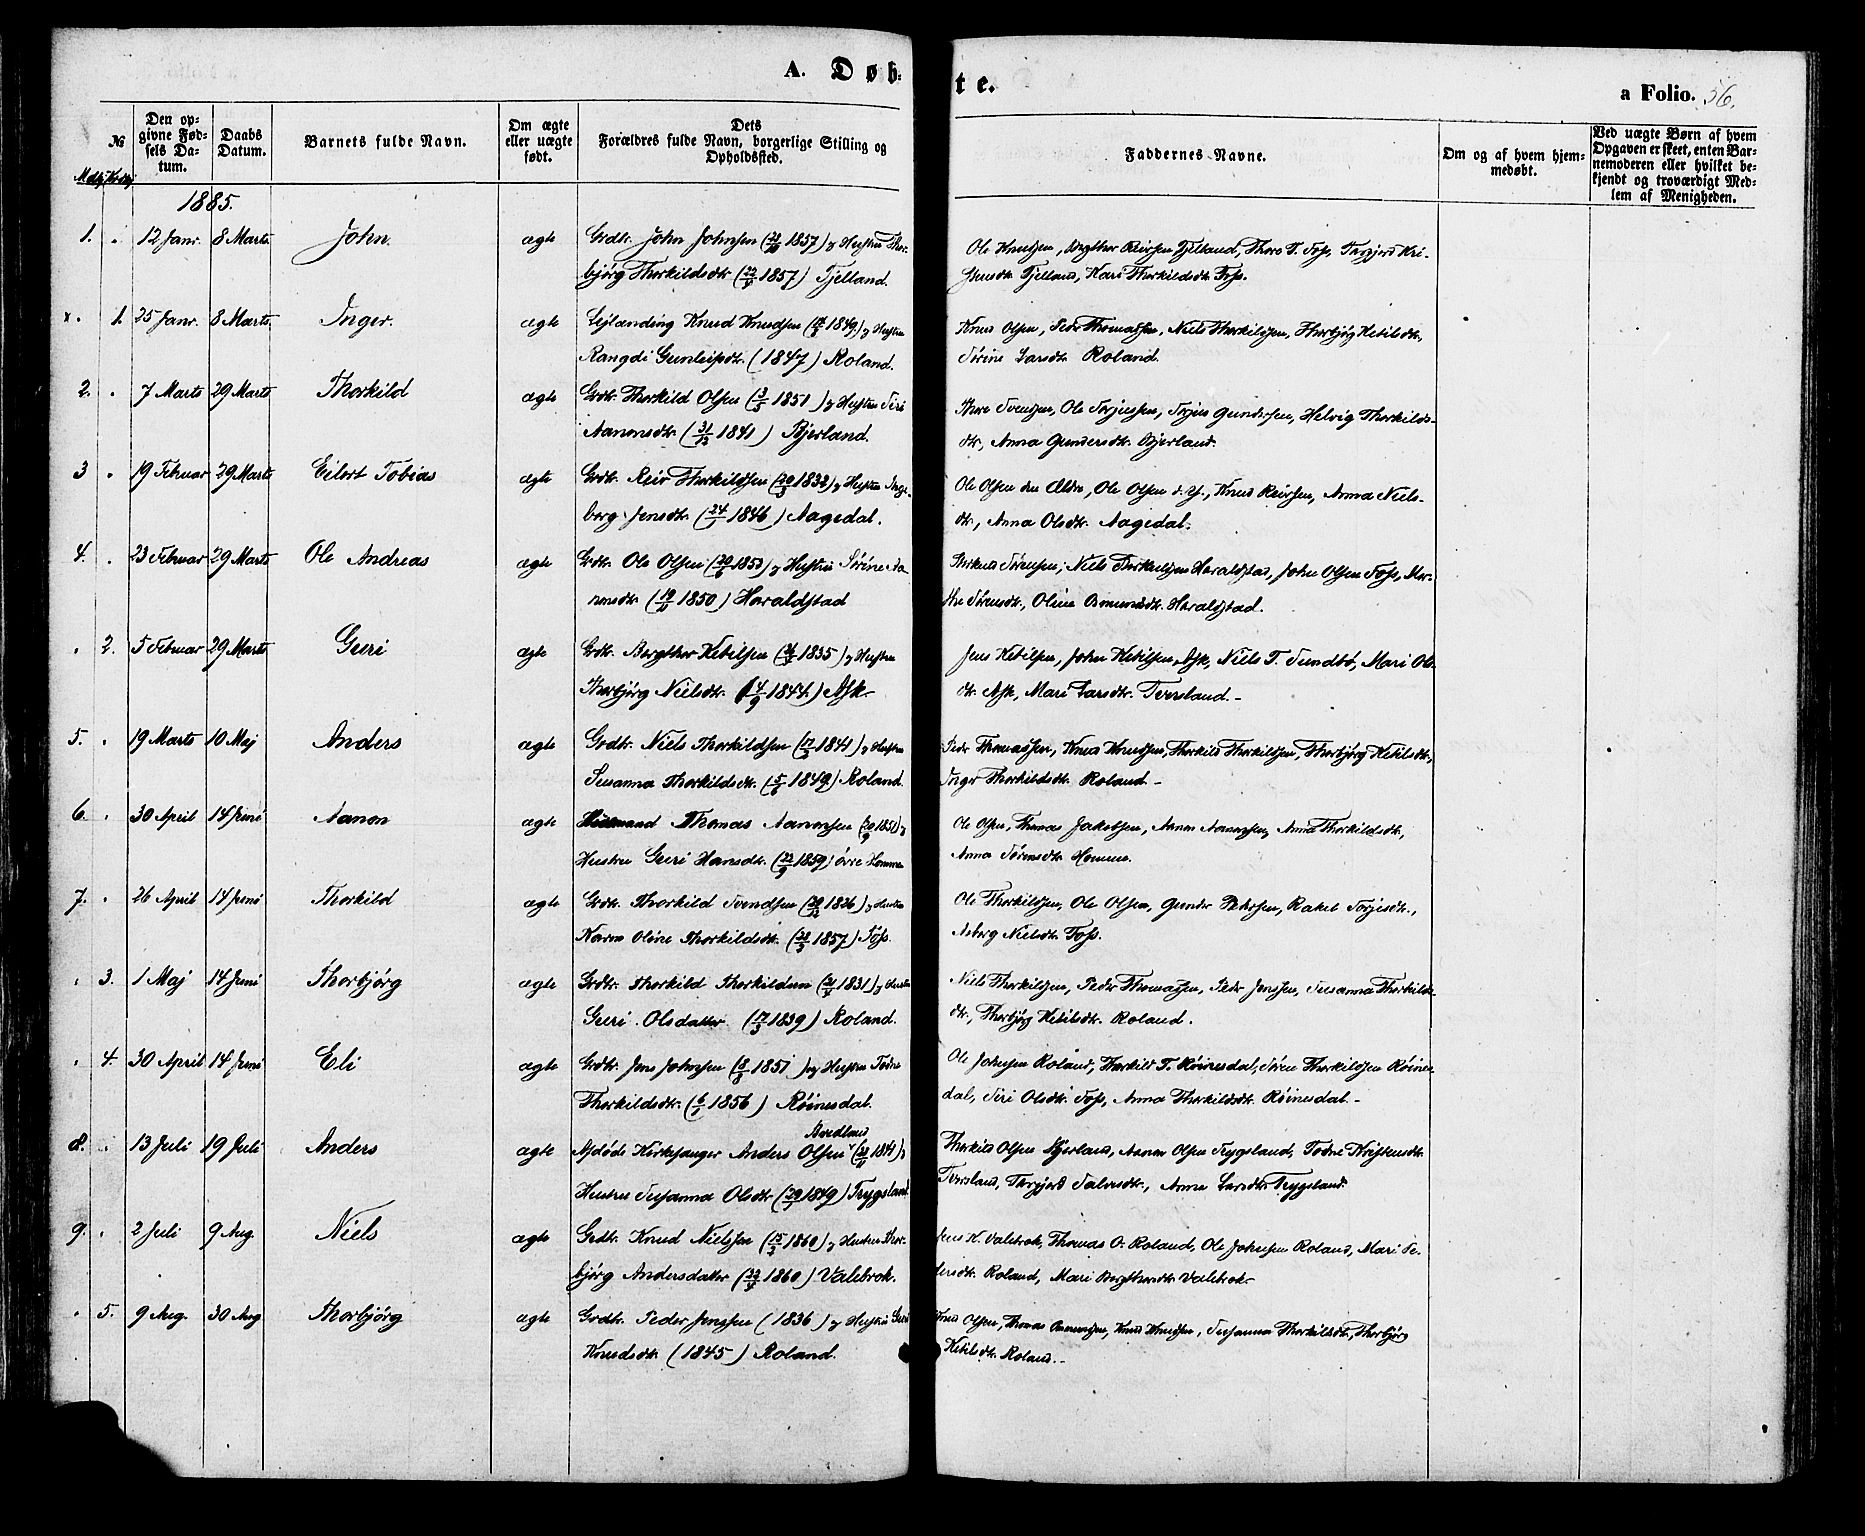 A. Døb-
te.
a Folio. 56.
№
Mdkj. Kvdkj
Den op-
givne Fød-
sels Da-
tum.
Daabs
Datum.
Barnets fulde Navn.
Om ægte
eller uægte
født.
Dets
Forældres fulde Navn, borgerlige Stilling og
Opholdssted.
Faddernes Navne.
Om og af hvem hjem-
medøbt.
Ved uægte Børn af hvem
Opgaven er skeet, enten Bar-
nemoderen eller hvilket be-
kjendt og troværdigt Med-
lem af Menigheden.
1885.
1. 12 Janr. 8 Marts John. ægte Grdbr. John Johnsen 1857) og Hustru Thor-
bjørg Thorkildsdtr. 1857) Fjelland.
Ole Knudsen, Bergthor Reiersen Fjelland, Thore T. Foss, Torgjerd Kri-
stensdtr. Fjelland, Kari Thorkildsdtr. Foss.
x. 1. 25 Janr. 8 Marts. Inger. ægte Lejlænding Knud Knudsen 1849) og Hustru
Rangdi Gunleifsdtr. (1847) Roland.
Knud Olsen, Peder Thomassen, Niels Thorkildsen, Thorbjørg Ketilsdtr.,
Sørine Larsdtr. Roland.
2. 7 Marts 29 Marts Thorkild ægte Grdbr. Thorkild Olsen (3/5 1851) og Hustru Siri
Aanonsdtr. (31/12 1841) Bjerland.
Thore Svendsen, Ole Torjussen, Torjus Gundersen, Helvig Thorkilds-
dtr., Anna Gundersdtr. Bjerland.
3 19 Februar 29 Marts Eilert Tobias ægte Grdbr. Reier Thorkildsen 1832) og Hustru Inge-
borg Jensdtr. 1846) Aagedal.
Ole Olsen den Ældre, Ole Olsen d. Y., Knud Reiersen, Anna Niels-
dtr., Anna Olsdtr. Aagedal.
4. 23 Februar 29 Marts Ole Andreas ægte Grdbr. Ole Olsen 1853) og Hustru Sørine Aa-
nonsdtr. 1850) Haraldstad
Thorkild Sørensen, Niels Thorkildsen Haraldstad, John Olsen Foss, Mar-
the Sørensdtr., Oline Omundsdtr. Haraldstad.
2. 5 Februar 29 Marts Guri ægte Grdbr. Bergthor Ketilsen 1835) og Hustru
Thorbjørg Nielsdtr. (4/9 1844.) Ask.
Jens Ketilsen, John Ketilsen Ask, Niels T. Sundbø, Mari Ols-
dtr. Ask, Mari Larsdtr. Tversland.
5. 19 Marts 10 Maj Anders ægte Grdbr. Niels Thorkildsen 1841) og Hustru
Susanna Thorkildsdtr. (5/6 1849) Roland.
Peder Thomassen, Knud Knudsen, Thorkild Thorkildsen, Thorbjørg Ketilsdtr.,
Inger Thorkildsdtr. Roland.
6. 30 April 14 Juni Aanon ægte Thomas Aanonsen 1851) og
Hustru Guri Hansdtr. (22/9 1859) øvre Homme
Ole Olsen, Thomas Jakobsen, Aanon Aanonsen, Anna Thorkildsdtr.,
Anna Sørensdtr. Homme.
7. 26 April 14 Juni Thorkild ægte Grdbr. Thorkild Svendsen 1826) og Hustru
Karen Oline Thorkildsdtr. 1857) Foss.
Ole Thorkildsen, Ole Olsen, Gunder Pedersen, Rakel Torjesdtr.,
Asberg Nielsdtr. Foss.
3. 1 Maj 14 Juni Thorbjørg ægte Grdbr. Thorkild Thorkildsen 1831) og Hustru
Guri Olsdatter (17/3 1839) Roland.
Niels Thorkildsen, Peder Thomassen, Peder Jenssen, Susanna Thorkilds-
dtr., Thorbjørg Ketilsdtr. Roland.
4. 30 April 14 Juni Eli ægte Grdbr. Jens Johnsen (8/8 1851) og Hustru Todne
Thorkildsdtr. 1856) Røinesdal.
Ole Johnsen Roland, Thorkild T. Røinesdal, Sören Thorkildsen Røines-
dal, Siri Olsdtr. Foss, Anna Thorkildsdtr. Røinesdal.
8. 13 Juli 19 Juli Anders ægte Afdøde Kirkesanger Anders Olsen Bredland 1841) og
Hustru Susanna Olsdtr. 1849) Trygsland
Thorkild Olsen Bjerland, Aanon Olsen Trygsland, Todne Kristensdtr.
Tversland, Thorgjerd Salvesdtr., Anne Larsdtr. Trygsland.
9. 2 Juli 9 Aug. Niels ægte Grdbr. Knud Nielssen 1860) og Hustru Thor-
bjørg Andersdatter 1860) Valebrok.
Jens K. Valebrok, Thomas O. Roland, Ole Johnsen Roland, Mari Pe-
dersdtr. Roland, Mari Bergthorsdtr. Valebrok.
5. 9 Aug. 30 Aug Thorbjørg ægte Grdbr. Peder Jenssen (1836) og Hustru Guri
Knudsdtr. (1845) Roland.
Knud Olsen, Thomas Omundsen, Knud Knudsen, Susanna Thorkildsdtr., Thorbjørg
Ketilsdtr. Roland.